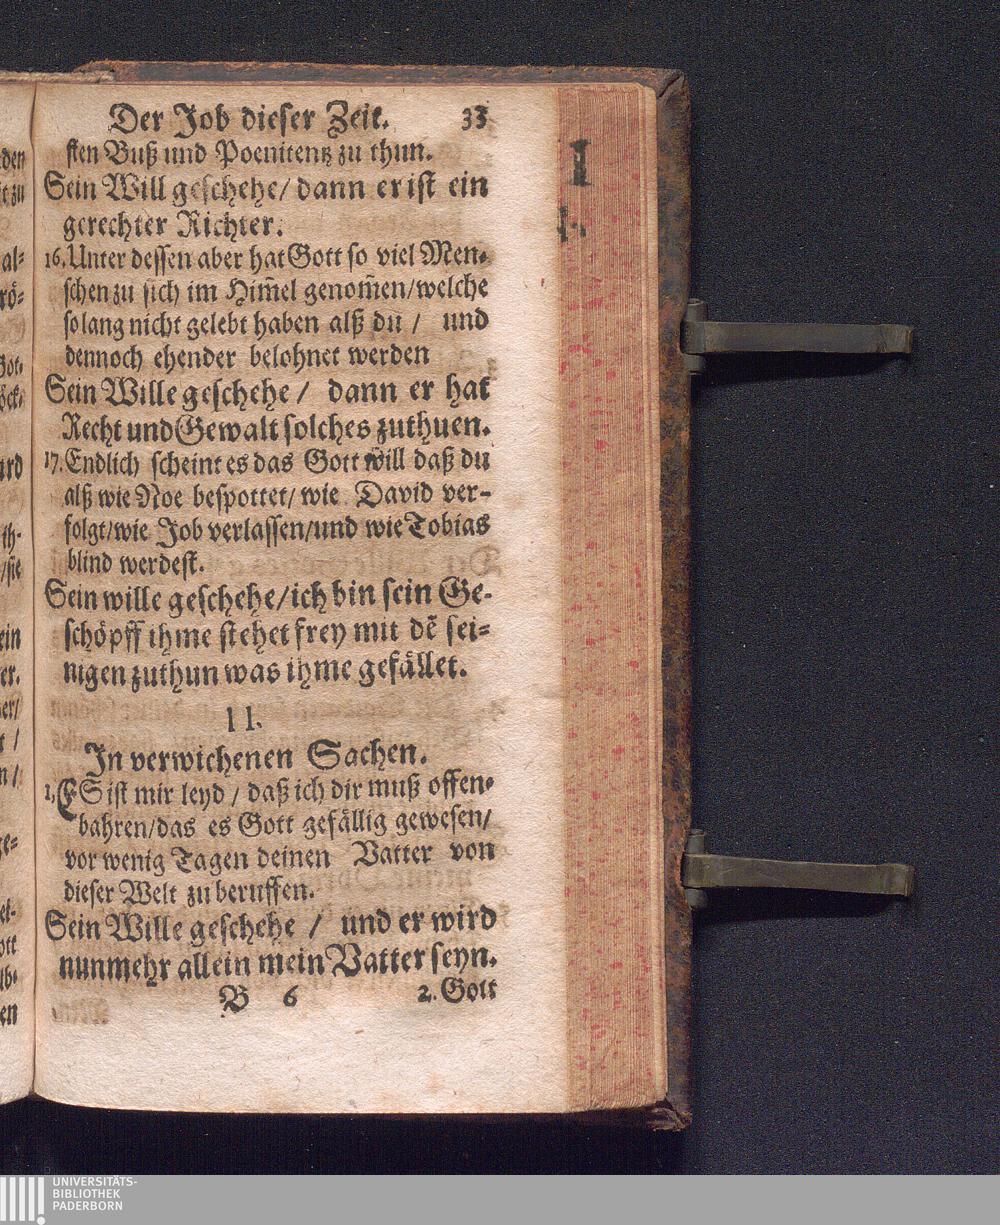 Der Job dieser Zeit. 33
sten Buß und Poenitentz zu thun.
Sein Will geschehe/ dann er ist ein
gerechter Richter.
16. Unter dessen aber hat Gott so viel Men-
schen zu sich im Him̃el genom̃en/welche
so lang nicht gelebt haben alß du / und
dennoch ehender belohnet werden
Sein Wille geschehe / dann er hat
Recht und Gewalt solches zuthuen.
17. Endlich scheint es das Gott will daß du
alß wie Noe bespottet/ wie David ver-
folgt/wie Job verlassen/und wie Tobias
blind werdest.
Sein wille geschehe/ich bin sein Ge-
schöpff ihme stehet frey mit dẽ sei-
nigen zuthun was ihme gefället.
II.
In verwichenen Sachen.
1. ES ist mir leyd / daß ich dir muß offen-
bahren/das es Gott gefällig gewesen/
vor wenig Tagen deinen Vatter von
dieser Welt zu beruffen.
Sein Wille geschehe / und er wird
nunmehr allein mein Vatter seyn.
B 6 2. Gott
UNIVERSITÄTS-
BIBLIOTHEK
PADERBORN